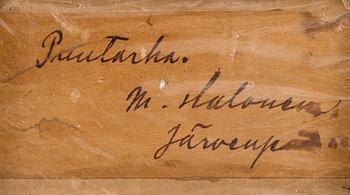 Puutarha.
M. Halonen
Järvenp